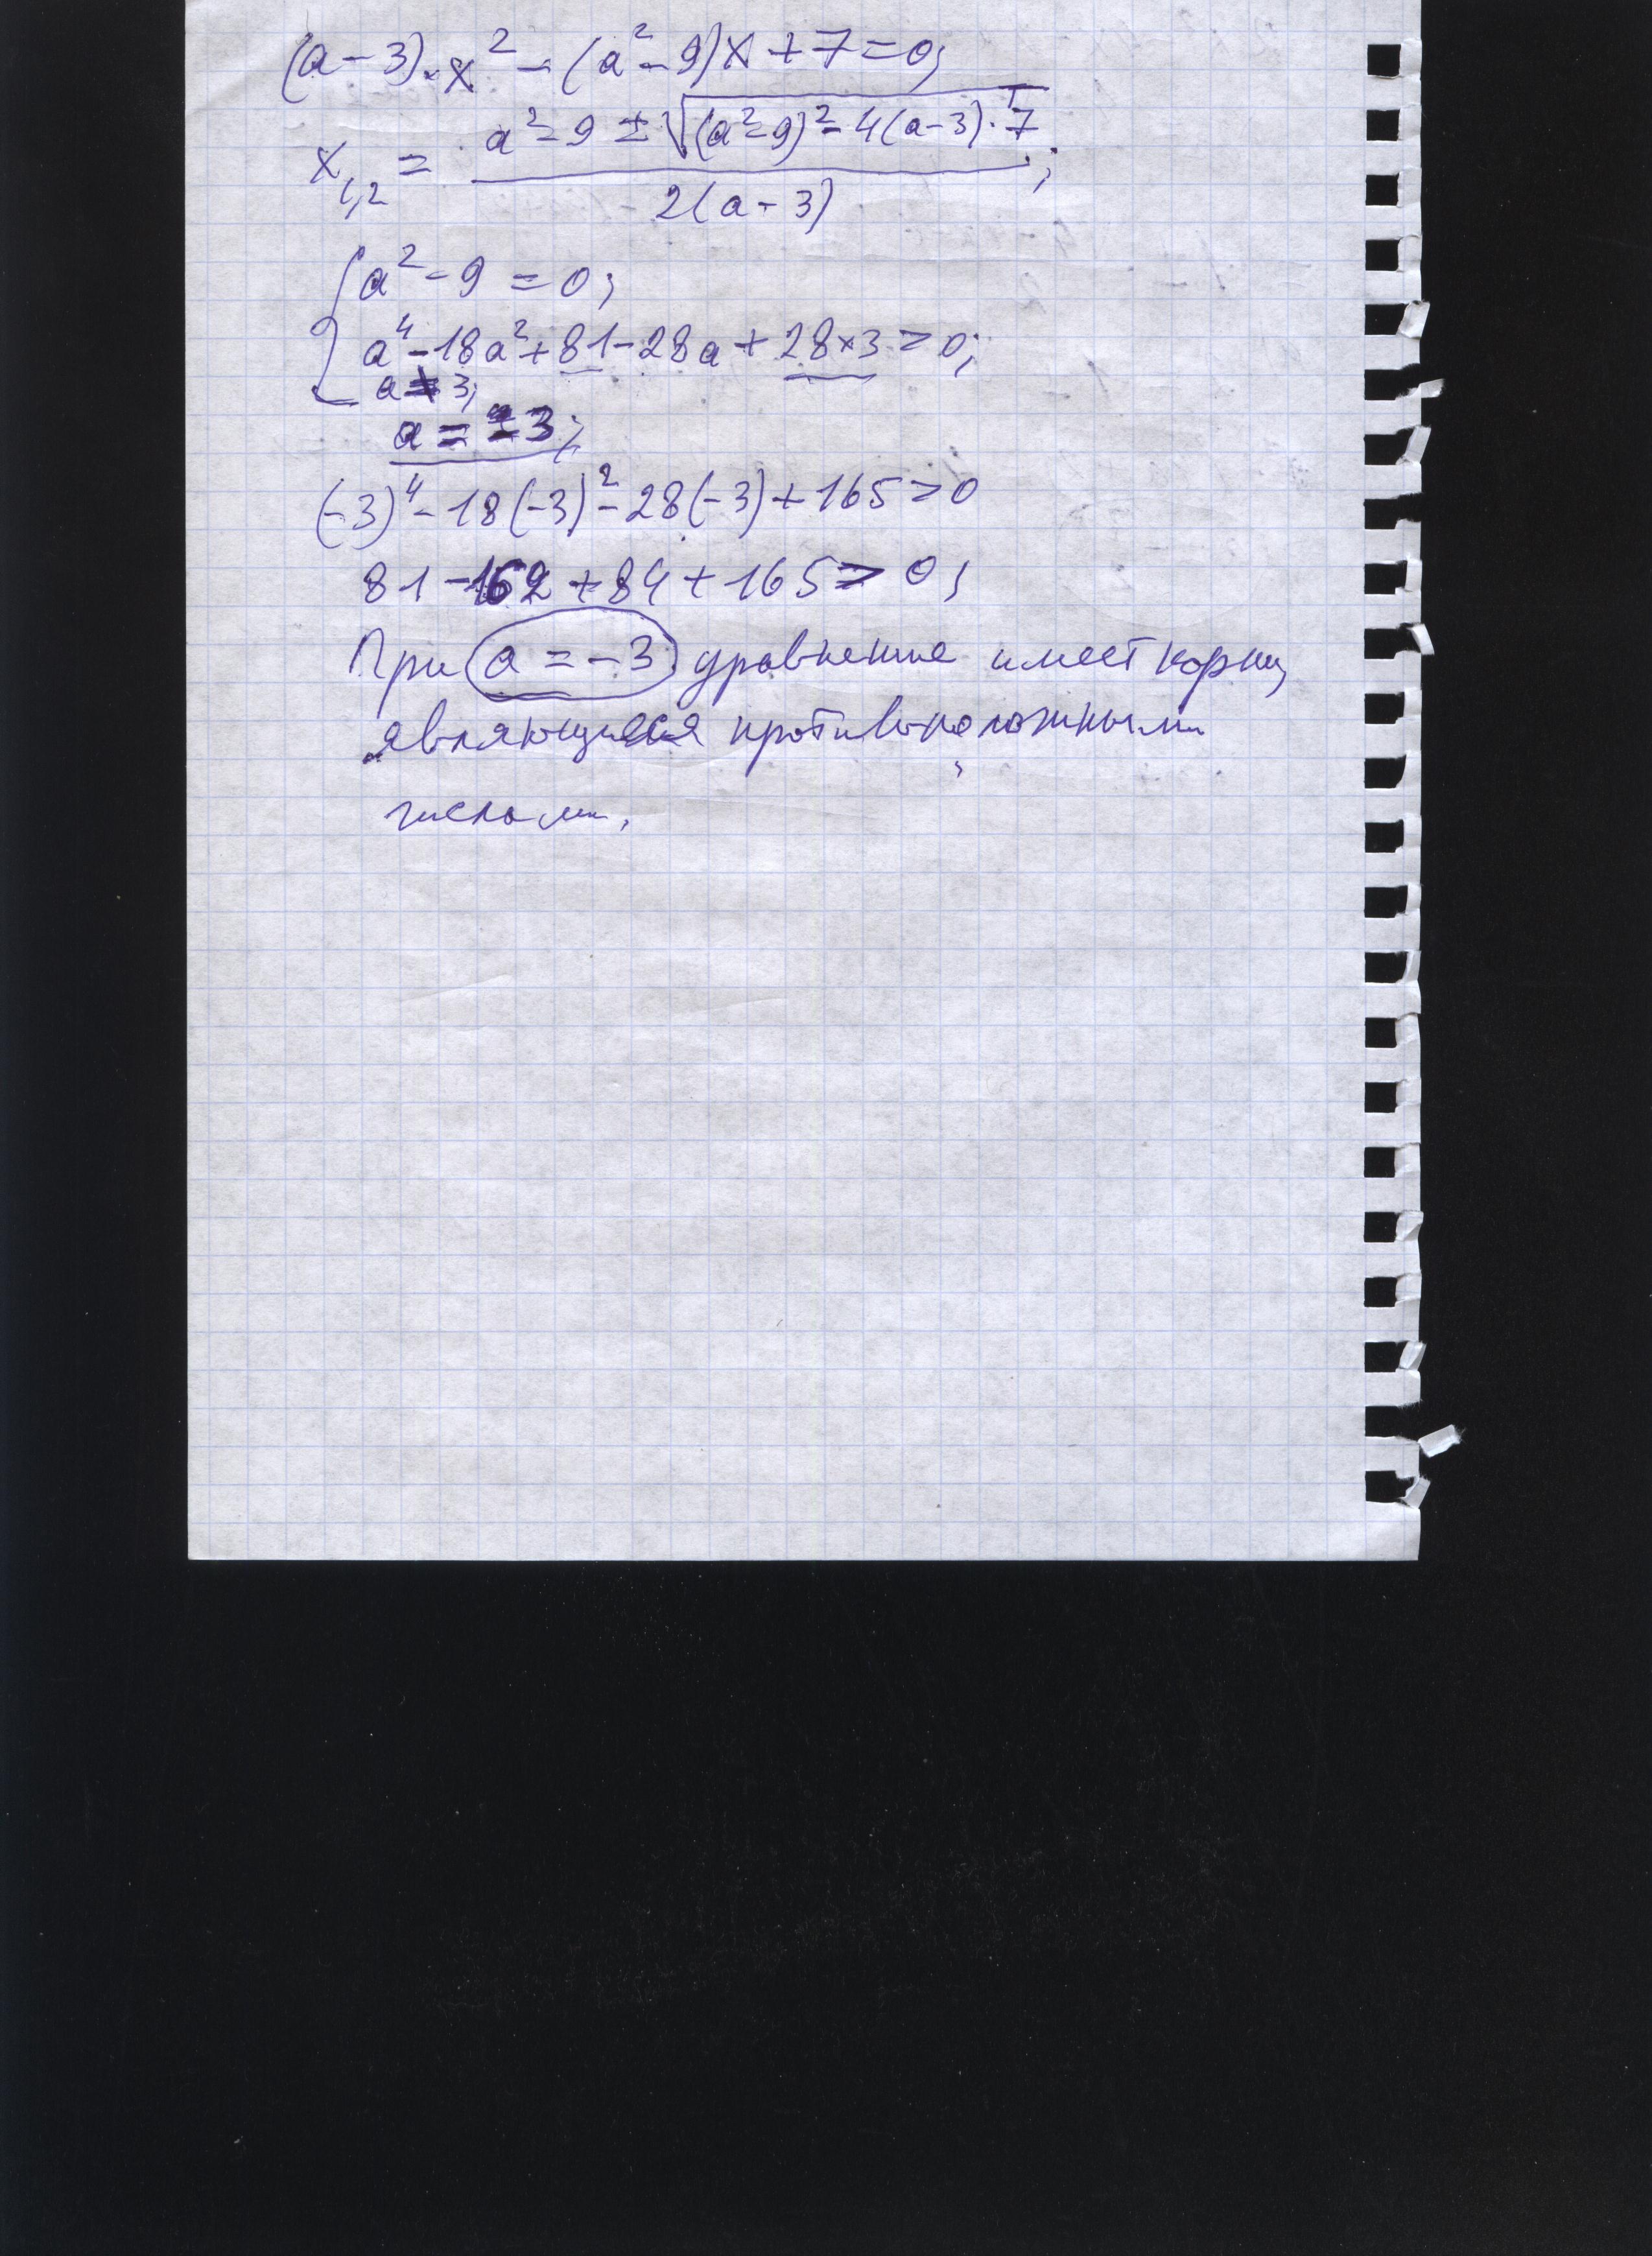 (a-3)·x² - (a²-9)x + 7 = 0;
x₁,₂ = (a²-9 ± √((a²-9)² - 4(a-3)·7)) / (2(a-3));
{ a² - 9 = 0;
a⁴ - 18a² + 81 - 28a + 28×3 > 0;
a ≠ 3;
a = -3;
(-3)⁴ - 18(-3)² - 28(-3) + 165 > 0
81 - 162 + 84 + 165 > 0;
При a = -3 уравнение имеет корни,
являющиеся противоположными
числами.